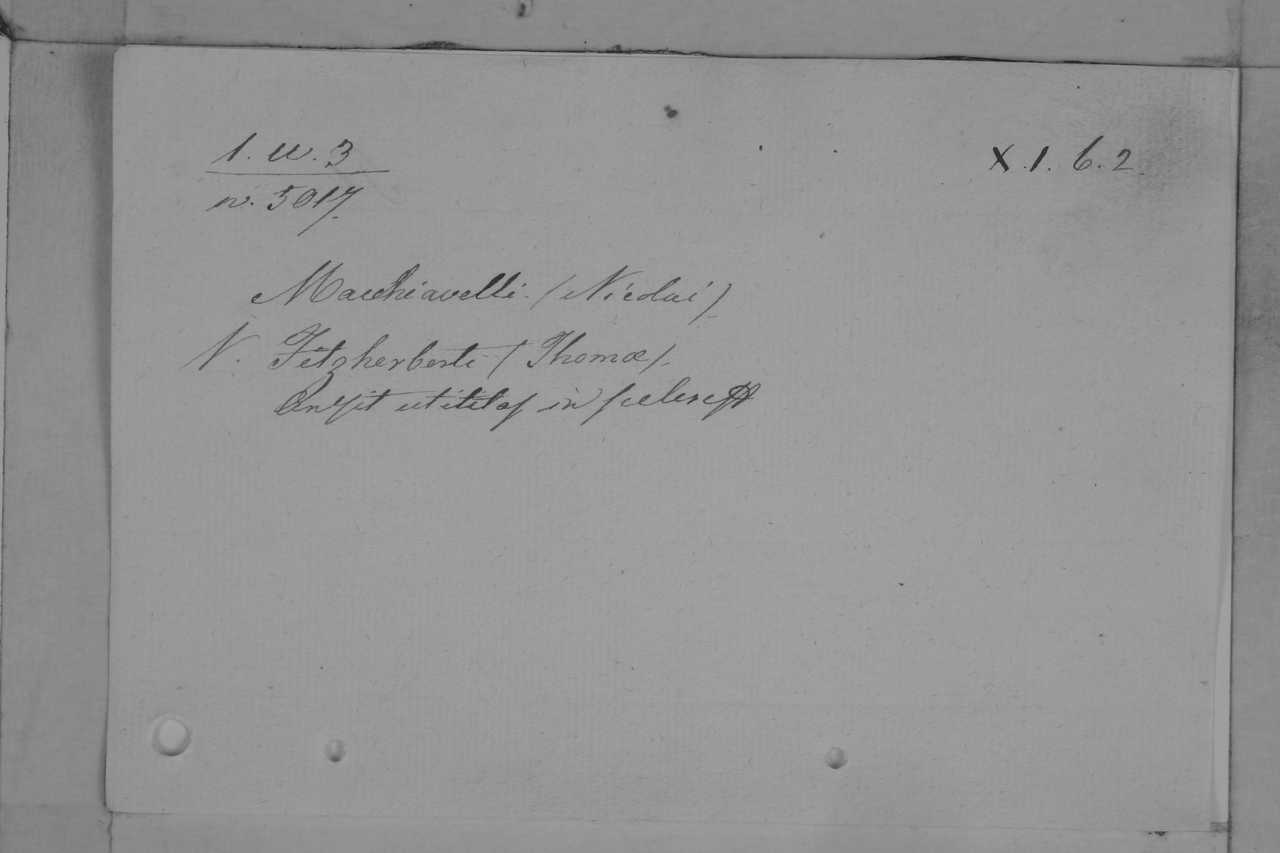 1. u. 3
X. 1. 6. 2.
n. 5017.
Macchiavelli. (Nicolai)
V. Fitzherberti (Thomæ).
An sit utilitas in scelere